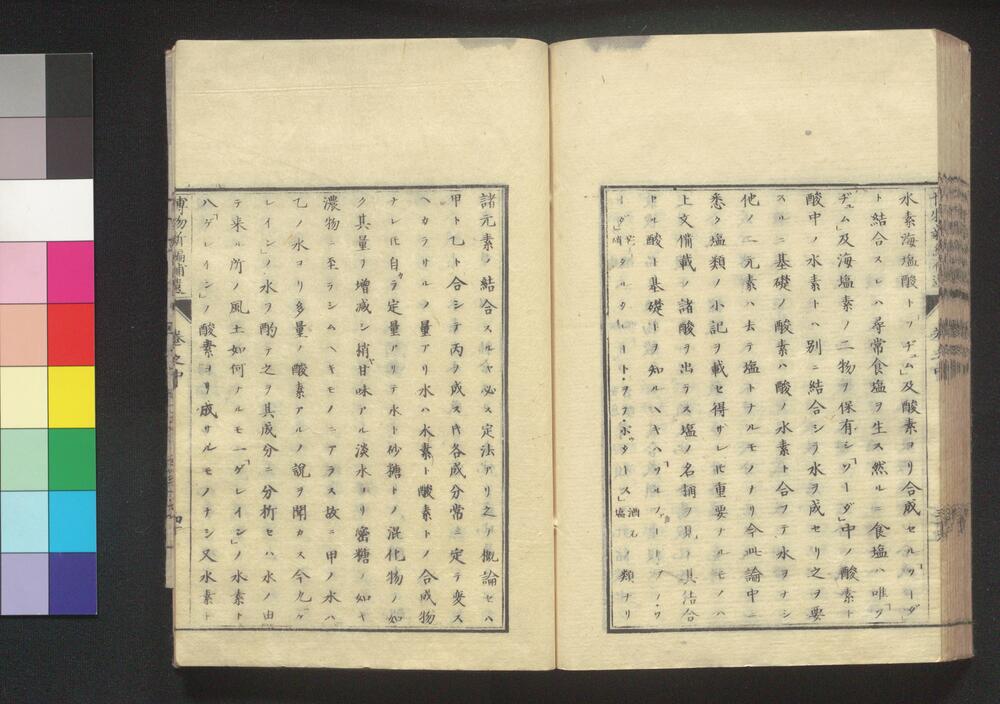 水素海塩酸ト「ソヂュム」及酸素ヨリ合成セル「ソーダ」
ト結合スレハ尋常食塩ヲ生ス然ルニ食塩ハ唯「ソ
ヂュム」及海塩素ノ二物ヲ保有シ「ソーダ」中ノ酸素ト
酸中ノ水素トハ別ニ結合シテ水ヲ成セリ之ヲ要
スルニ基礎ノ酸素ハ酸ノ水素ト合フテ水ヲナシ
他ノ二元素ハ去テ塩トナルモノナリ今此論中ニ
悉ク塩類ノ小記ヲ載セ得サレ𪜈重要ナルモノハ
上文備載ノ諸酸ヲ出テス塩ノ名稱ヲ見テ其結合
ドルノ酸ト基礎トヲ知ルヘキ
類ナリ
諸元素ノ結合スルヤ必ス定法アリ之ヲ概論セハ
甲ト乙ト合シテ丙ヲ成ス𪜈各成分常ニ定テ変ス
ヘカラサルノ量アリ水ハ水素ト酸素トノ合成物
ナレ𪜈自ラ定量アリテ水ト砂糖トノ混化物ノ如
ク其量ヲ増減シ稍甘味アル淡水ヨリ蜜糖ノ如キ
濃物ニ至ラシムヘキモノニアラス故ニ甲ノ水ハ
乙ノ水ヨリ多量ノ酸素アルノ説ヲ聞カス今九「ゲ
レイン」ノ水ヲ酌テ之ヲ其成分ニ分析セハ水ノ由
テ来ル所ノ風土如何ナルモ一「ゲレイン」ノ水素ト
八「ゲレイン」ノ酸素ヨリ成サルモノナシ又水素ト
博物新編補遺 巻之中